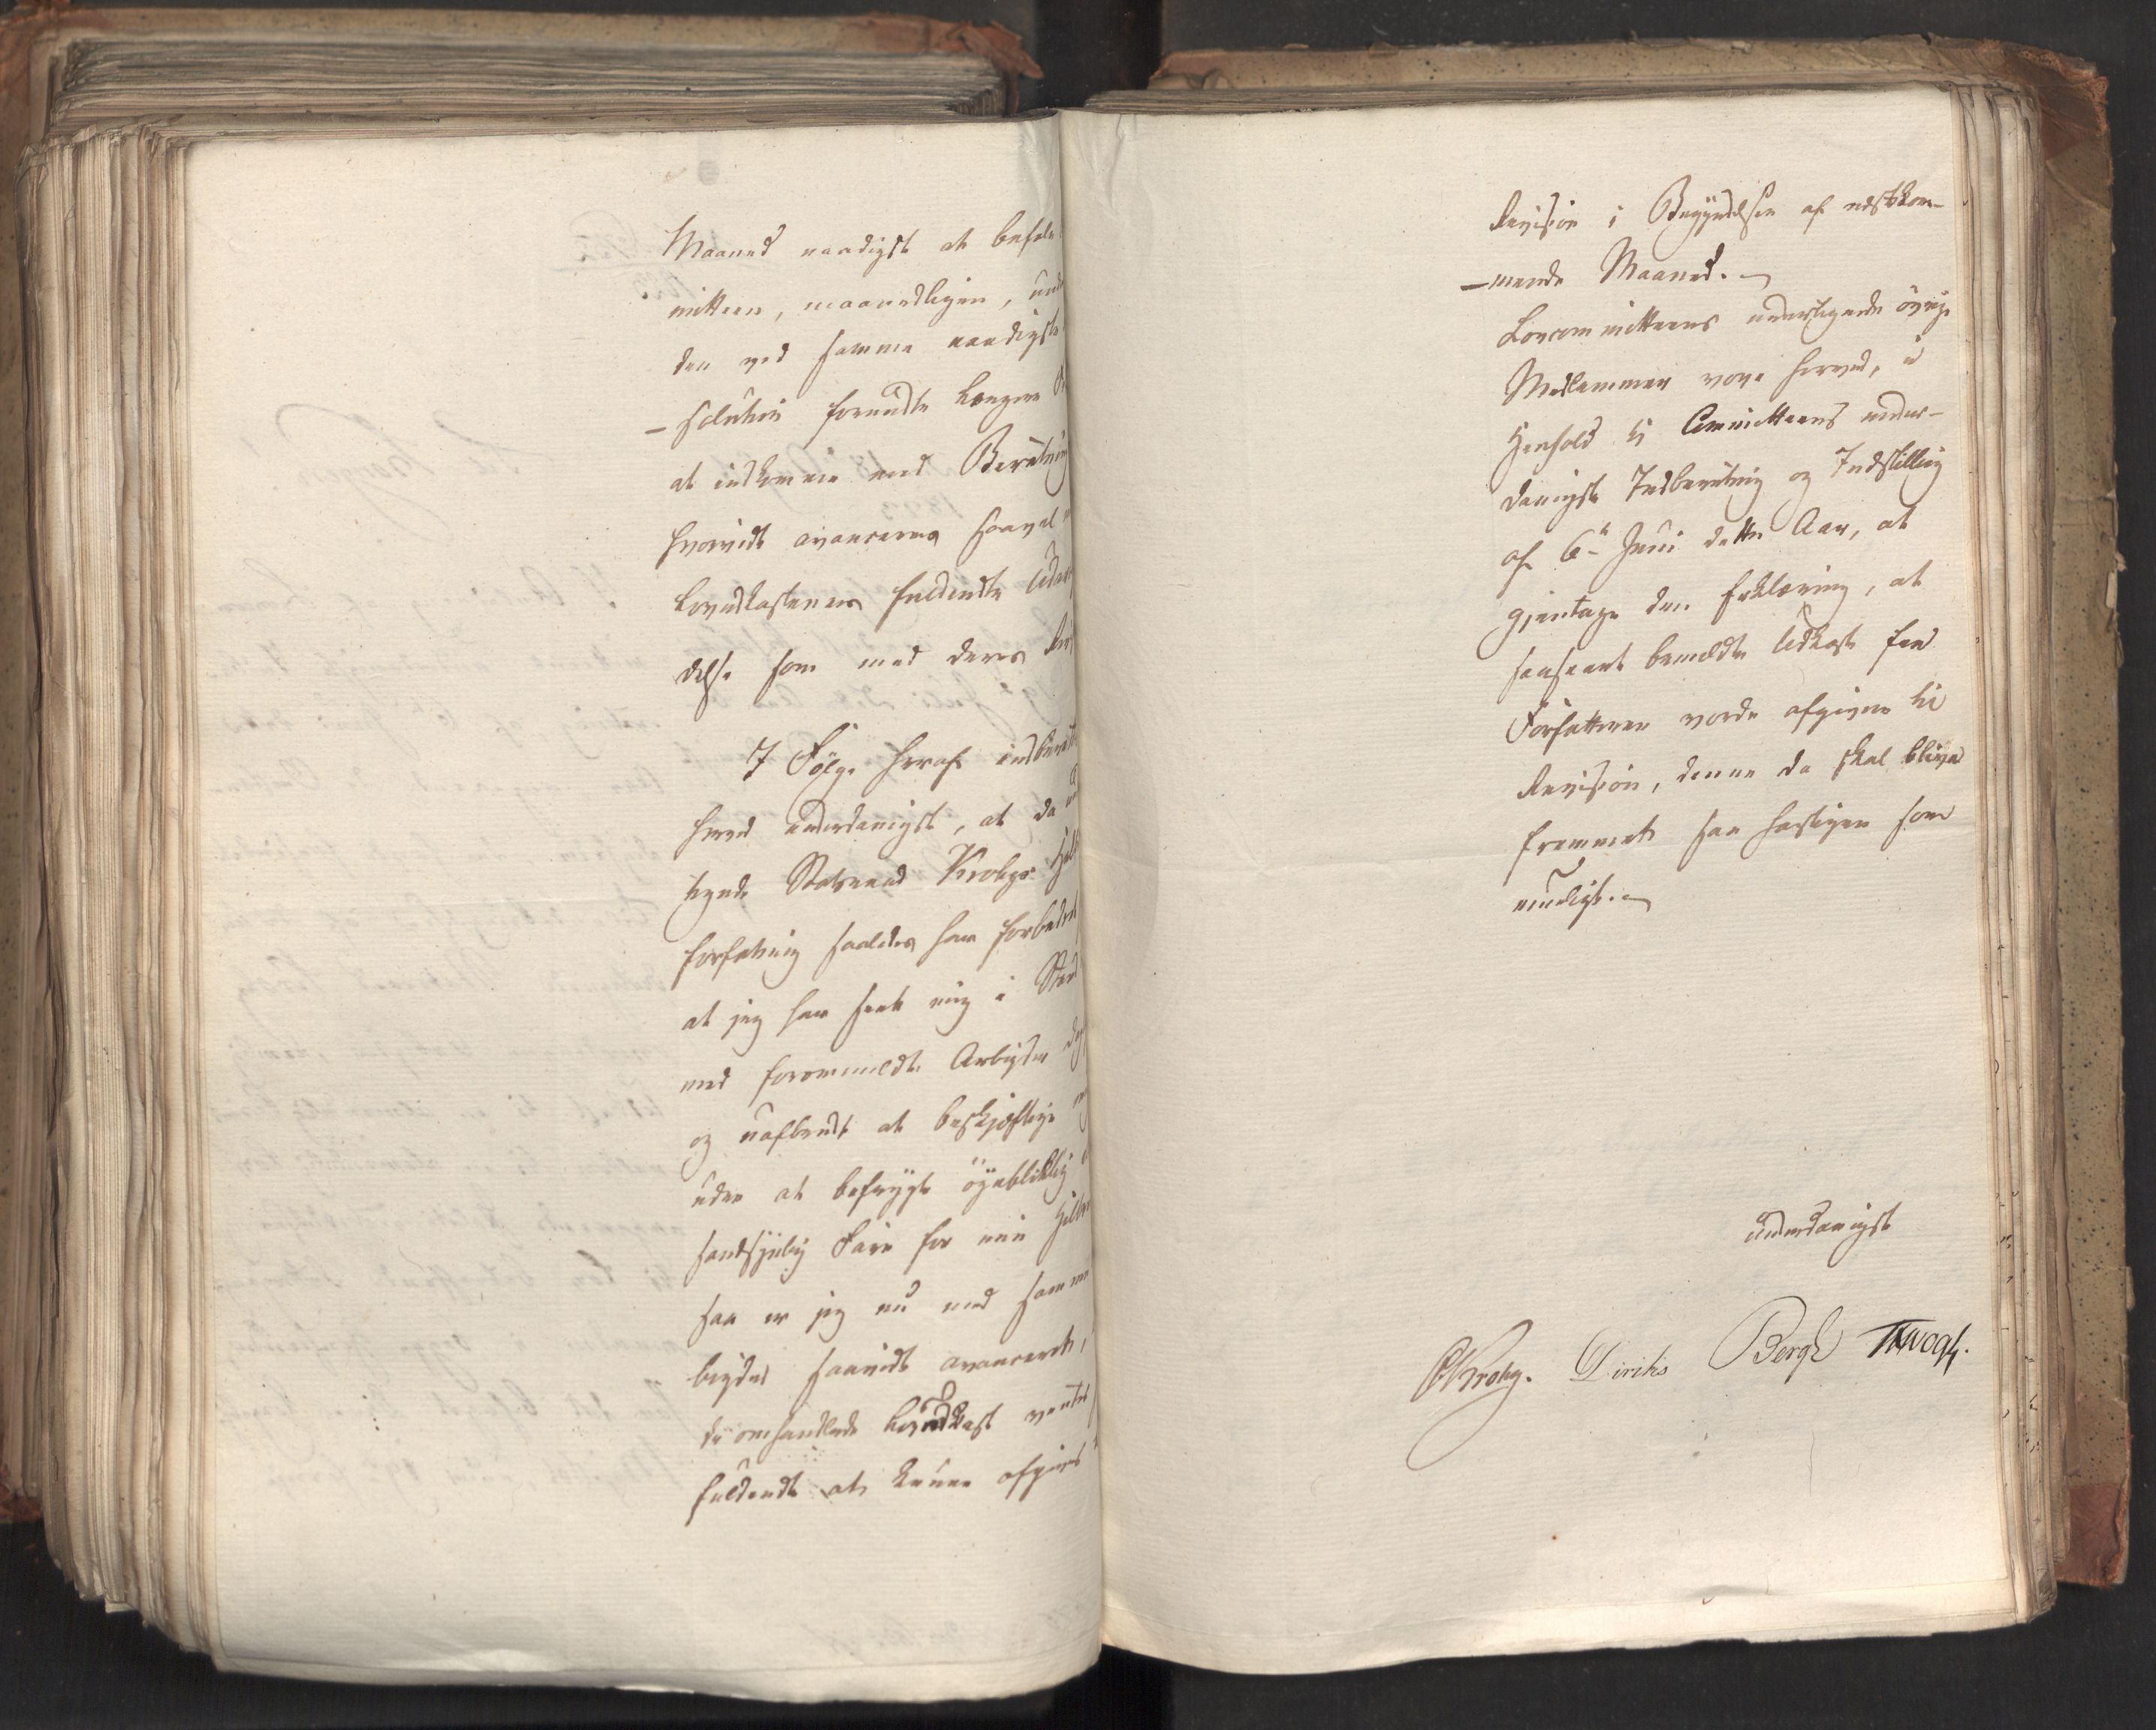 Maaned naadigst at befale
mitteen, maanedligen, und
den ved samme naadigste
-solution forundte længere
at indkomme med Beretning
hvorvidt avanceres saavel
Lovudkastenes fuldendte Udar
delse som med deres Rev
I Følge heraf indberet
herved underdanigst, at da
tegnede Statsraad Krohgs Hel
forfatning saaledes har forbedret
at jeg har seet mig i Stand
med forommeldte Arbeyder
og uafbrudt at beskjæftige
uden at befrygte öyeblikkelig
sandsynlig Fare for min Helbr
saa er jeg nu med samme
beyder saavidt avanceret,
de omhandlede Lovudkast ventes
fuldendte at kunne afgives
Revision i Begyndelsen af nestkom-
-mende Maaned.
Lovcommitteens undertegnede övrige
Medlemmer vove herved, i
Henhold til Committeens under-
danigste Indberetning og Indstilling
af 6te Juni dette Aar, at
gjentage den Erklæring, at
saasnart bemeldte Udkast fra
Forfatteren vorde afgivne til
Revision, denne da skal blive
fremmet saa hastigen som
mueligt.
Underdanigst
CKrohg. Diriks Bergh